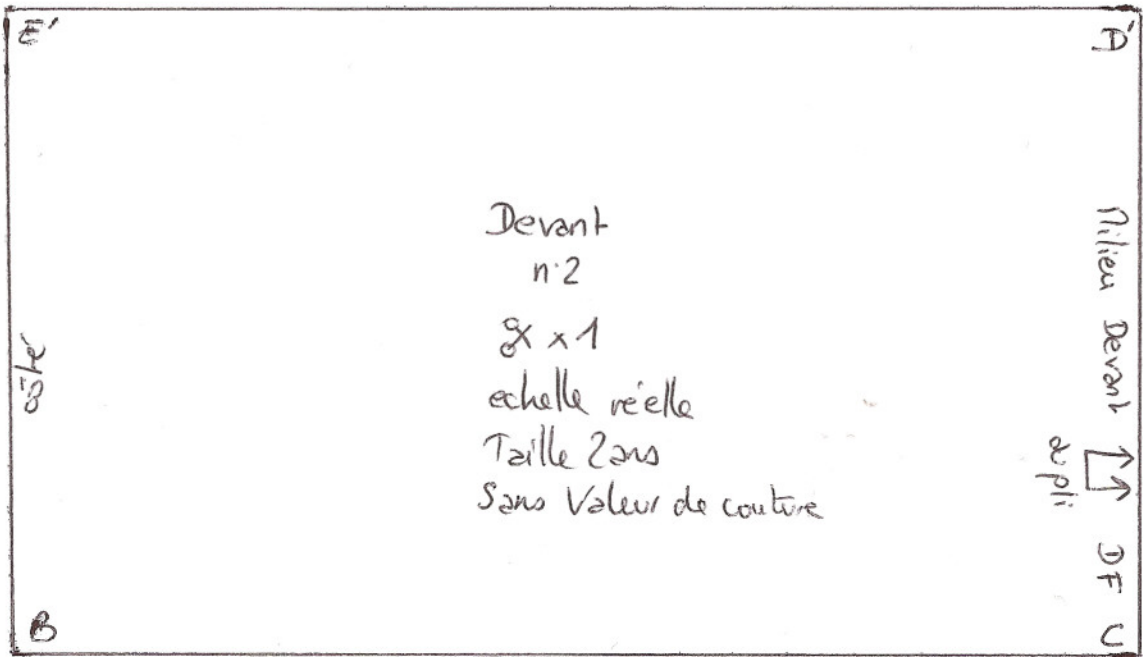 E'
D'
Devant
n°2
x 1
echelle réelle
Taille 2ans
Sans Valeur de couture
côté
Milieu Devant
DF
au pli
B
C